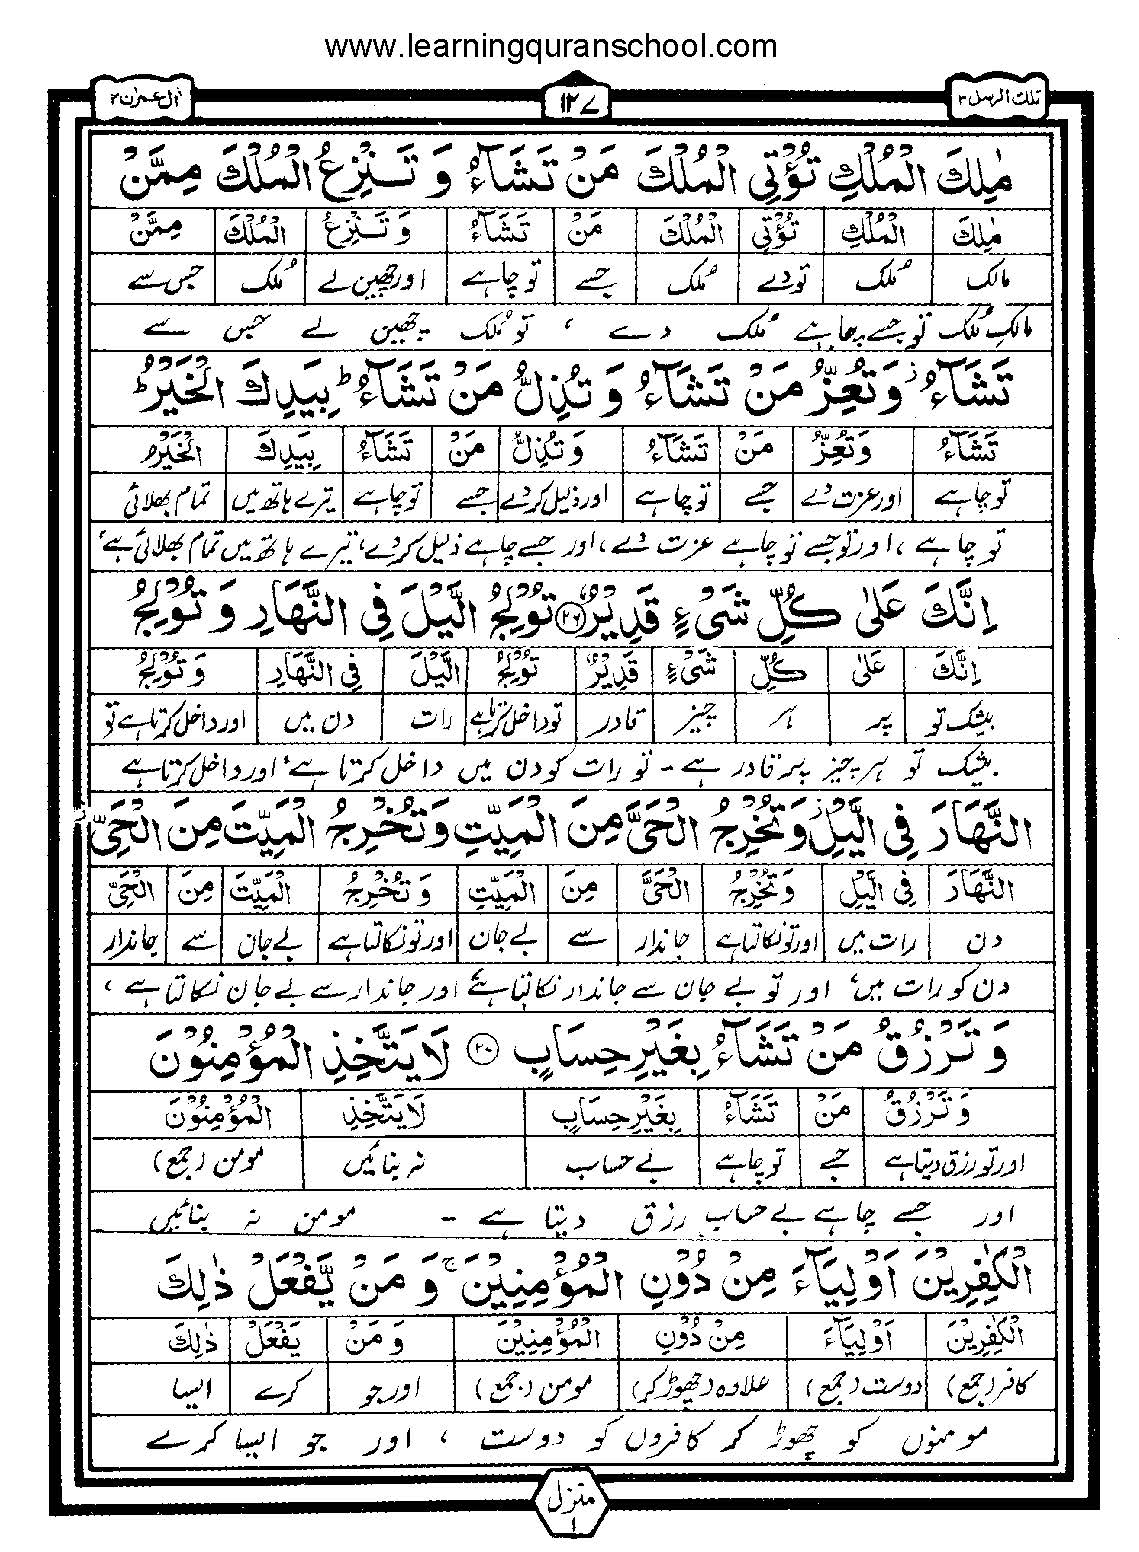 www.learningquranschool.com
تلك الرسل ۳ ۱۲۷ اٰل عمرٰن ۳
مٰلِكَ الْمُلْكِ تُؤْتِی الْمُلْكَ مَنْ تَشَآءُ وَ تَنْزِعُ الْمُلْكَ مِمَّنْ
مٰلِكَ الْمُلْكِ تُؤْتِی الْمُلْكَ مَنْ تَشَآءُ وَ تَنْزِعُ الْمُلْكَ مِمَّنْ
مالک مُلک تو دے مُلک جسے تو چاہے اور چھین لے مُلک جس سے
مالکِ مُلک تو جسے چاہے مُلک دے ، تو مُلک چھین لے جس سے
تَشَآءُ ز وَ تُعِزُّ مَنْ تَشَآءُ وَ تُذِلُّ مَنْ تَشَآءُ ط بِیَدِكَ الْخَیْرُ ط
تَشَآءُ وَ تُعِزُّ مَنْ تَشَآءُ وَ تُذِلُّ مَنْ تَشَآءُ بِیَدِكَ الْخَیْرُ
تو چاہے اور عزت دے جسے تو چاہے اور ذلیل کر دے جسے تو چاہے تیرے ہاتھ میں تمام بھلائی
تو چاہے ، اور تو جسے تو چاہے عزت دے، اور جسے چاہے ذلیل کر دے، تیرے ہاتھ میں تمام بھلائی ہے،
اِنَّكَ عَلٰی كُلِّ شَیْءٍ قَدِیْرٌ ۲۶ تُوْلِجُ الَّیْلَ فِی النَّهَارِ وَ تُوْلِجُ
اِنَّكَ عَلٰی كُلِّ شَیْءٍ قَدِیْرٌ تُوْلِجُ الَّیْلَ فِی النَّهَارِ وَ تُوْلِجُ
بیشک تو پر ہر چیز قادر تو داخل کرتا ہے رات دن میں اور داخل کرتا ہے تو
بیشک تو ہر چیز پر قادر ہے - تو رات کو دن میں داخل کرتا ہے، اور داخل کرتا ہے
النَّهَارَ فِی الَّیْلِ ز وَ تُخْرِجُ الْحَیَّ مِنَ الْمَیِّتِ وَ تُخْرِجُ الْمَیِّتَ مِنَ الْحَیِّ ز
النَّهَارَ فِی الَّیْلِ وَ تُخْرِجُ الْحَیَّ مِنَ الْمَیِّتِ وَ تُخْرِجُ الْمَیِّتَ مِنَ الْحَیِّ
دن رات میں اور تو نکالتا ہے جاندار سے بے جان اور تو نکالتا ہے بے جان سے جاندار
دن کو رات میں، اور تو بے جان سے جاندار نکالتا ہے، اور جاندار سے بے جان نکالتا ہے ،
وَ تَرْزُقُ مَنْ تَشَآءُ بِغَیْرِ حِسَابٍ ۲۷ لَا یَتَّخِذِ الْمُؤْمِنُوْنَ
وَ تَرْزُقُ مَنْ تَشَآءُ بِغَیْرِ حِسَابٍ لَا یَتَّخِذِ الْمُؤْمِنُوْنَ
اور تو رزق دیتا ہے جسے تو چاہے بے حساب نہ بنائیں مومن (جمع)
اور جسے چاہے بے حساب رزق دیتا ہے - مومن نہ بنائیں
الْكٰفِرِیْنَ اَوْلِیَآءَ مِنْ دُوْنِ الْمُؤْمِنِیْنَ ج وَ مَنْ یَّفْعَلْ ذٰلِكَ
الْكٰفِرِیْنَ اَوْلِیَآءَ مِنْ دُوْنِ الْمُؤْمِنِیْنَ وَ مَنْ یَفْعَلْ ذٰلِكَ
کافر (جمع) دوست (جمع) علاوہ (چھوڑ کر) مومن (جمع) اور جو کرے ایسا
مومنوں کو چھوڑ کر کافروں کو دوست ، اور جو ایسا کرے
منزل ۱